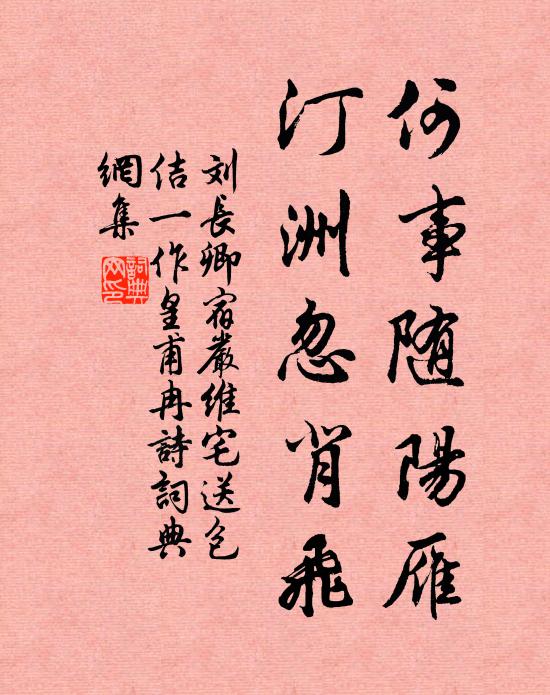 何事随陽雁
汀洲忽背飛
刘長卿宿嚴維宅送包
佶一作皇甫冉詩詞典
網集
詞典
网印